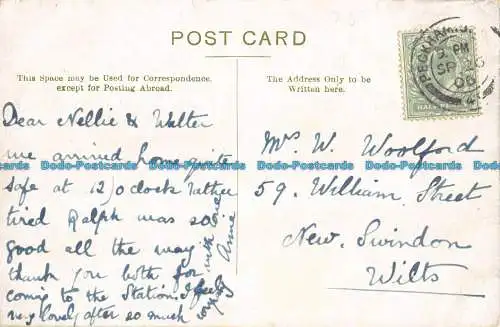 POST CARD
This Space may be Used for Correspondence,
except for Posting Abroad.
The Address Only to be
Written here.
PECKHAM.S.
PM
SP 26
06
HALF PENNY
Dear Nellie & Walter
we arrived home quite
safe at 12/oclock rather
tired Ralph was so
good all the way
thank you both for
coming to the Station I feel
very lonely after so much
with love
Annie
Mrs W. Woolford
59. William Street
New. Swindon
Wilts
Dodo-Postcards Dodo-Postcards Dodo-Postcards Dodo-Postcards Dodo-Postcards